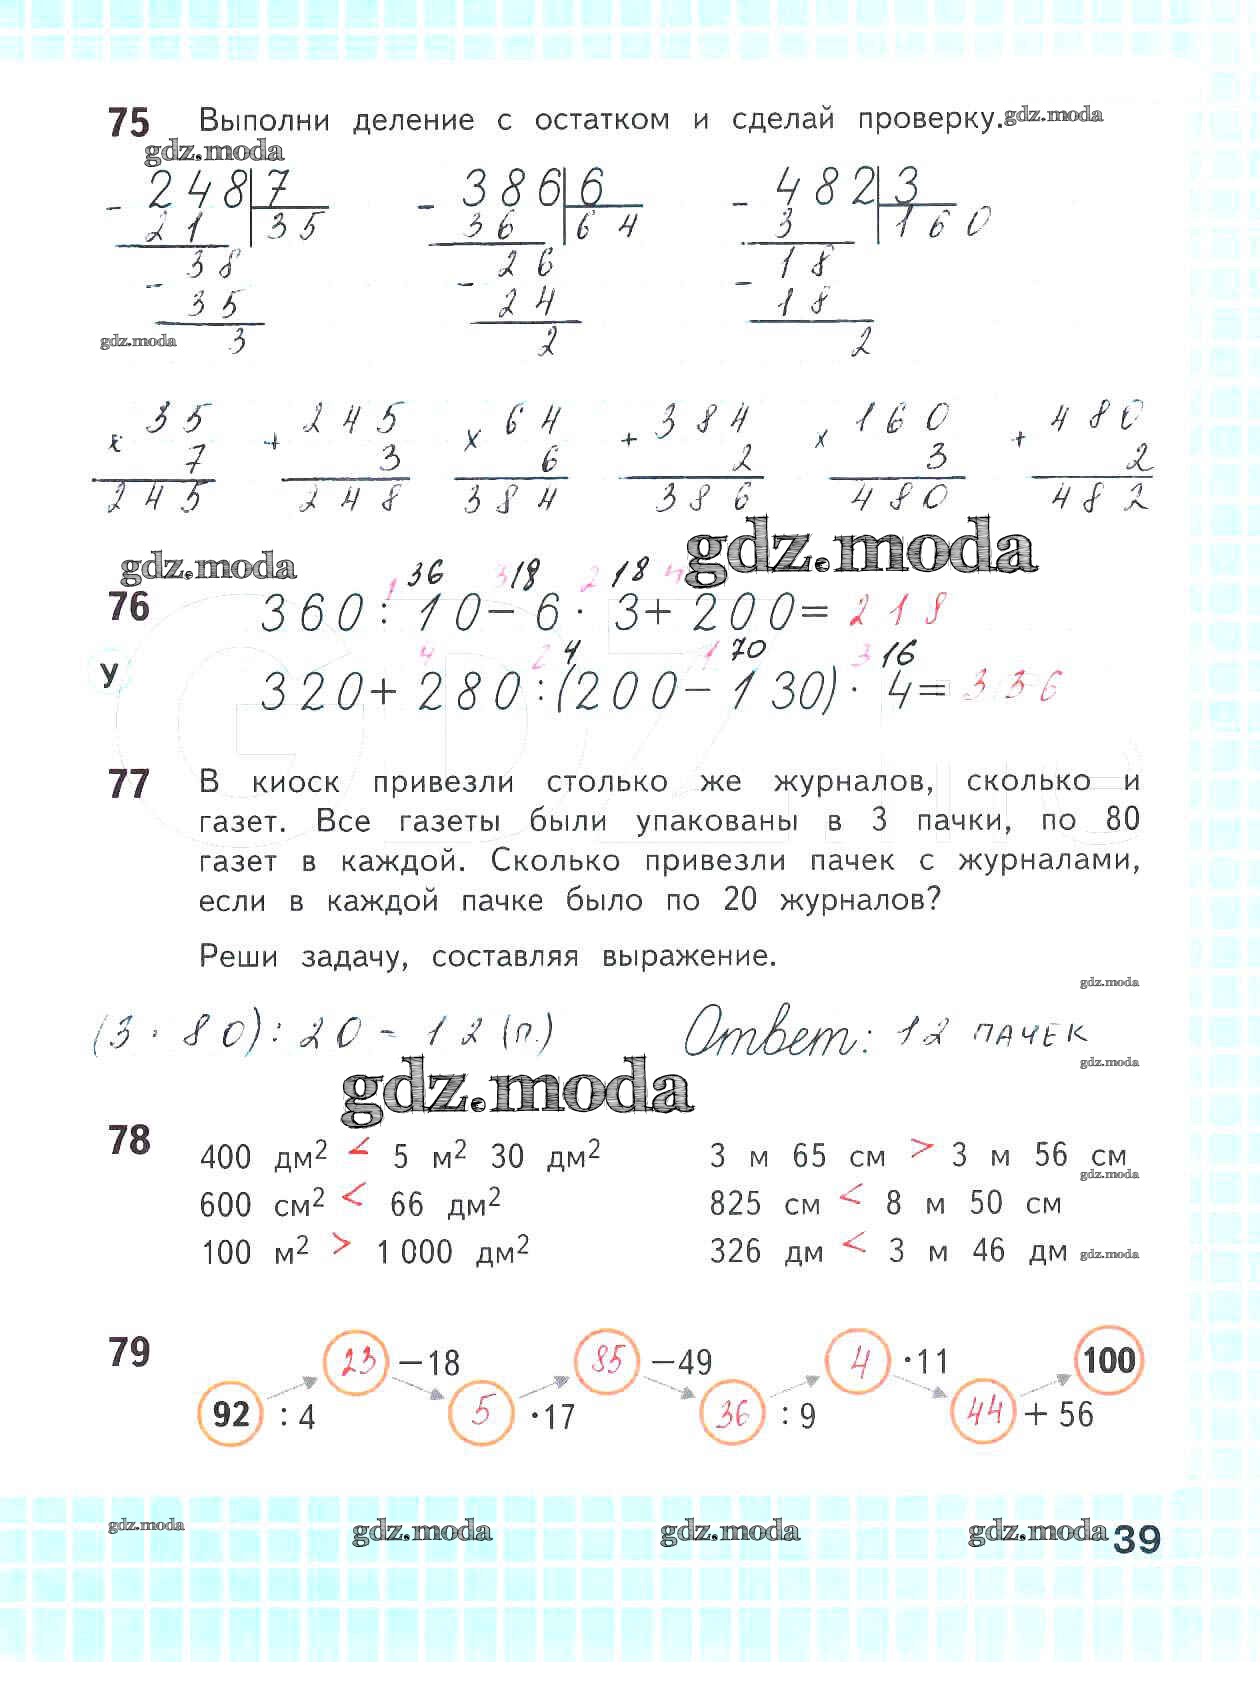 75 Выполни деление с остатком и сделай проверку. gdz.moda
gdz.moda
- 248 | 7 - 386 | 6 - 482 | 3
21 35 36 64 3 160
- 38 - 26 - 18
35 24 18
gdz.moda 3 2 2
35 245 64 384 160 480
x 7 + 3 x 6 + 2 x 3 + 2
245 248 384 386 480 482
gdz.moda gdz.moda
1 36 3 18 2 18 4
76 360 : 10 - 6 · 3 + 200 = 218
4 2 4 1 70 3 16
У 320 + 280 : (200 - 130) · 4 = 336
77 В киоск привезли столько же журналов, сколько и
газет. Все газеты были упакованы в 3 пачки, по 80
газет в каждой. Сколько привезли пачек с журналами,
если в каждой пачке было по 20 журналов?
Реши задачу, составляя выражение.
gdz.moda
(3 · 80) : 20 = 12 (п.) Ответ: 12 пачек
gdz.moda
gdz.moda
78 400 дм² < 5 м² 30 дм² 3 м 65 см > 3 м 56 см
gdz.moda
600 см² < 66 дм² 825 см < 8 м 50 см
100 м² > 1 000 дм² 326 дм < 3 м 46 дм gdz.moda
79 23 −18 85 −49 4 ·11 100
92 : 4 5 ·17 36 : 9 44 + 56
gdz.moda gdz.moda gdz.moda gdz.moda 39